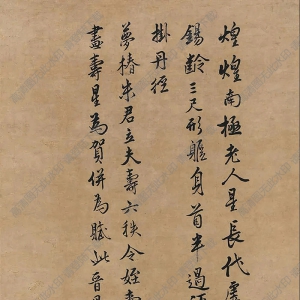 煌煌南極老人星長代
錫齡三尺形軀身首半過
掛丹經
夢椿朱君立夫壽六秩令姪
畫壽星為賀併為賦此晉